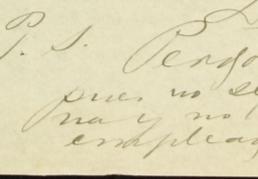 P. S. Perdo
pues no se
na y no
emplea